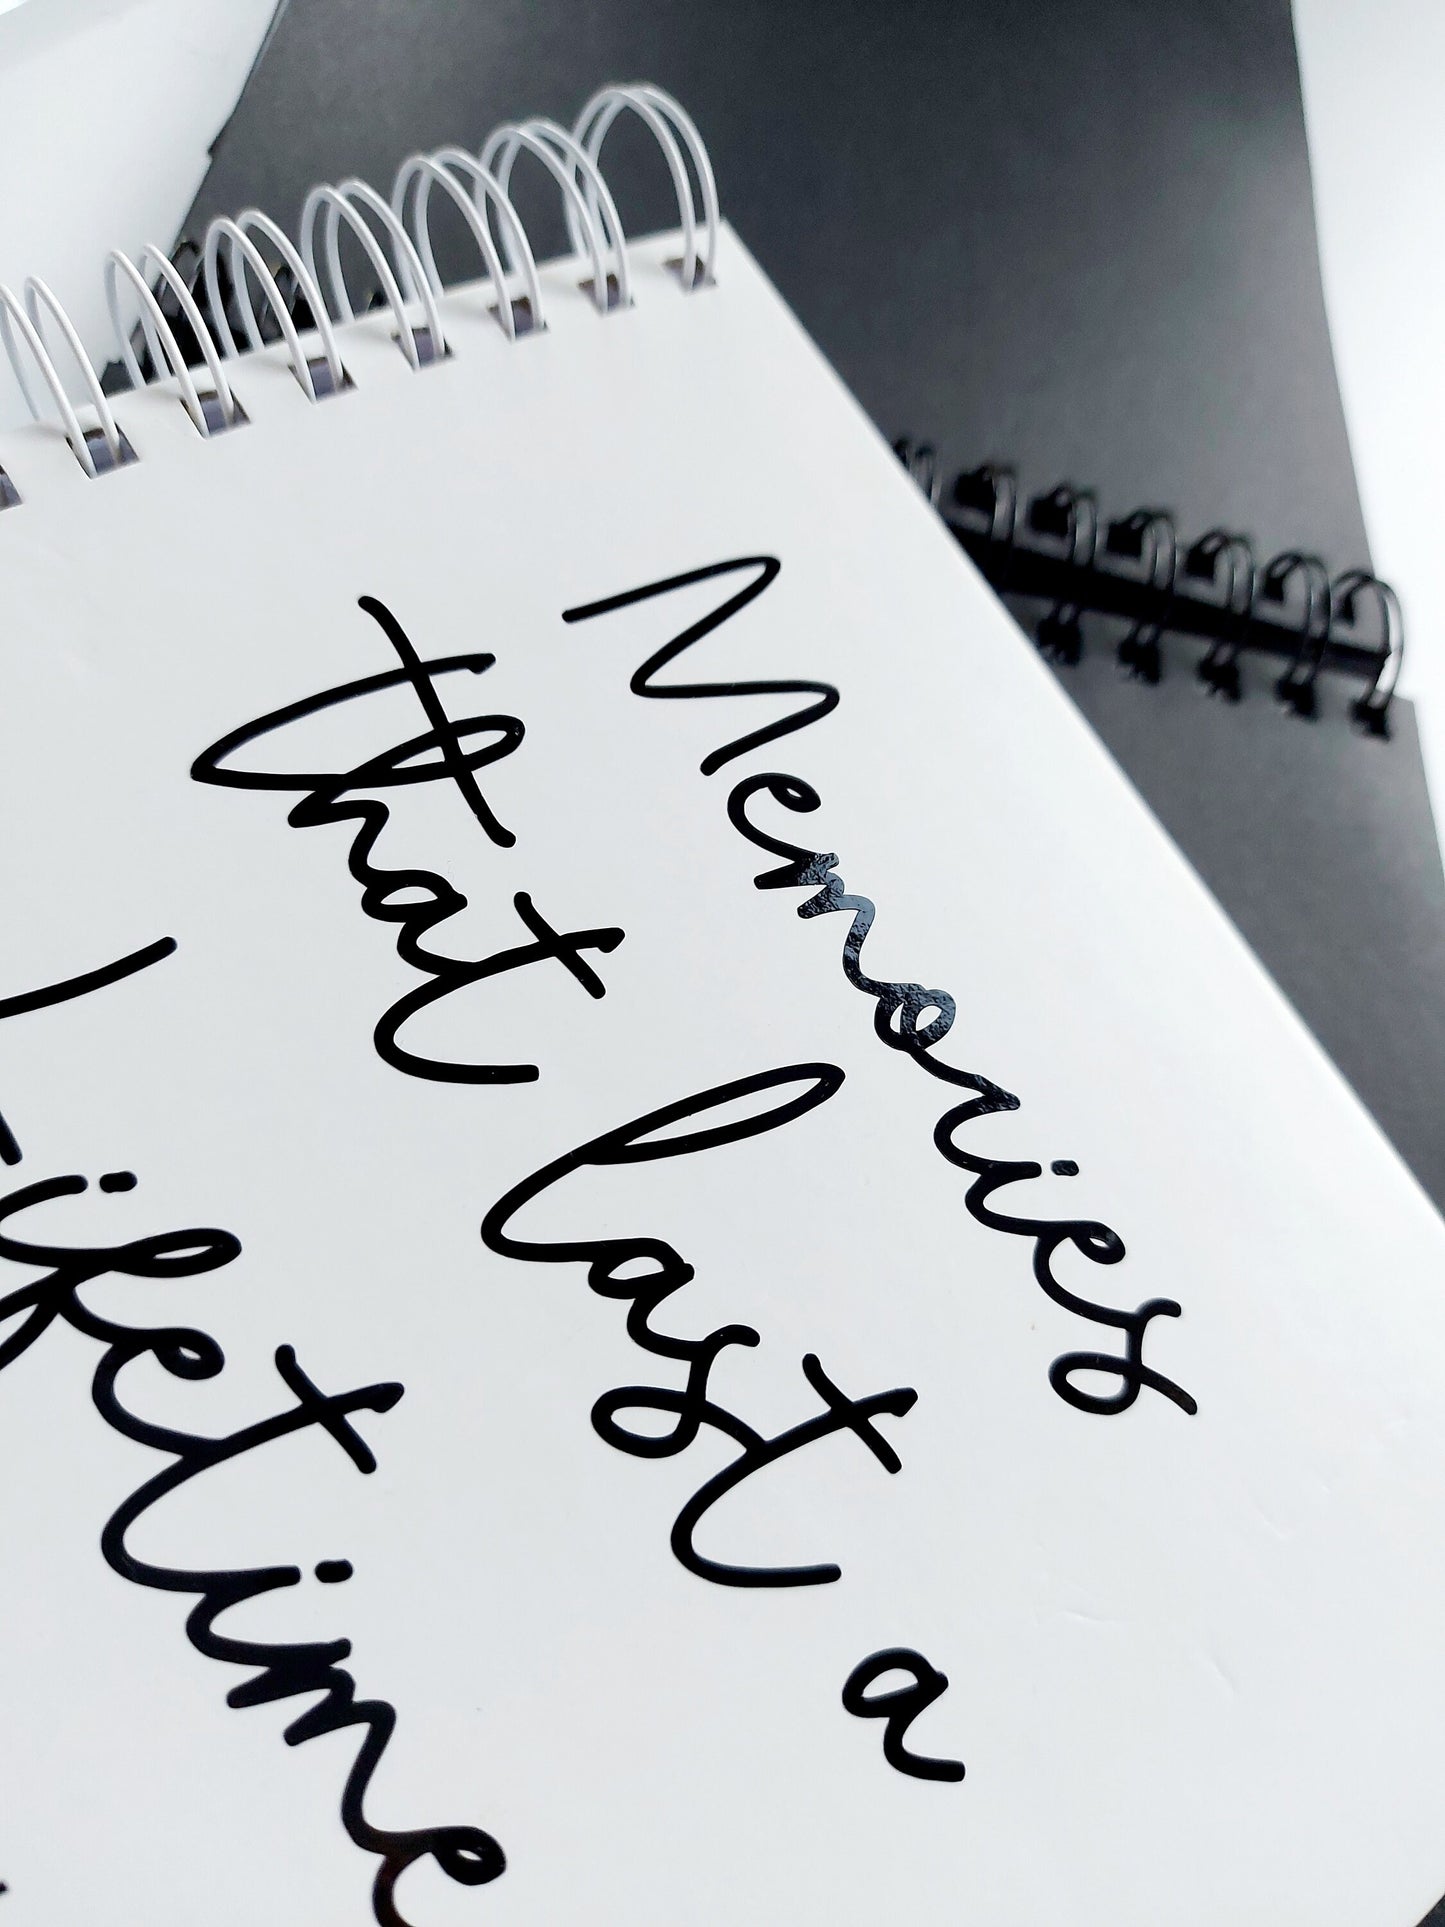 Memories
that last a
Lifetime